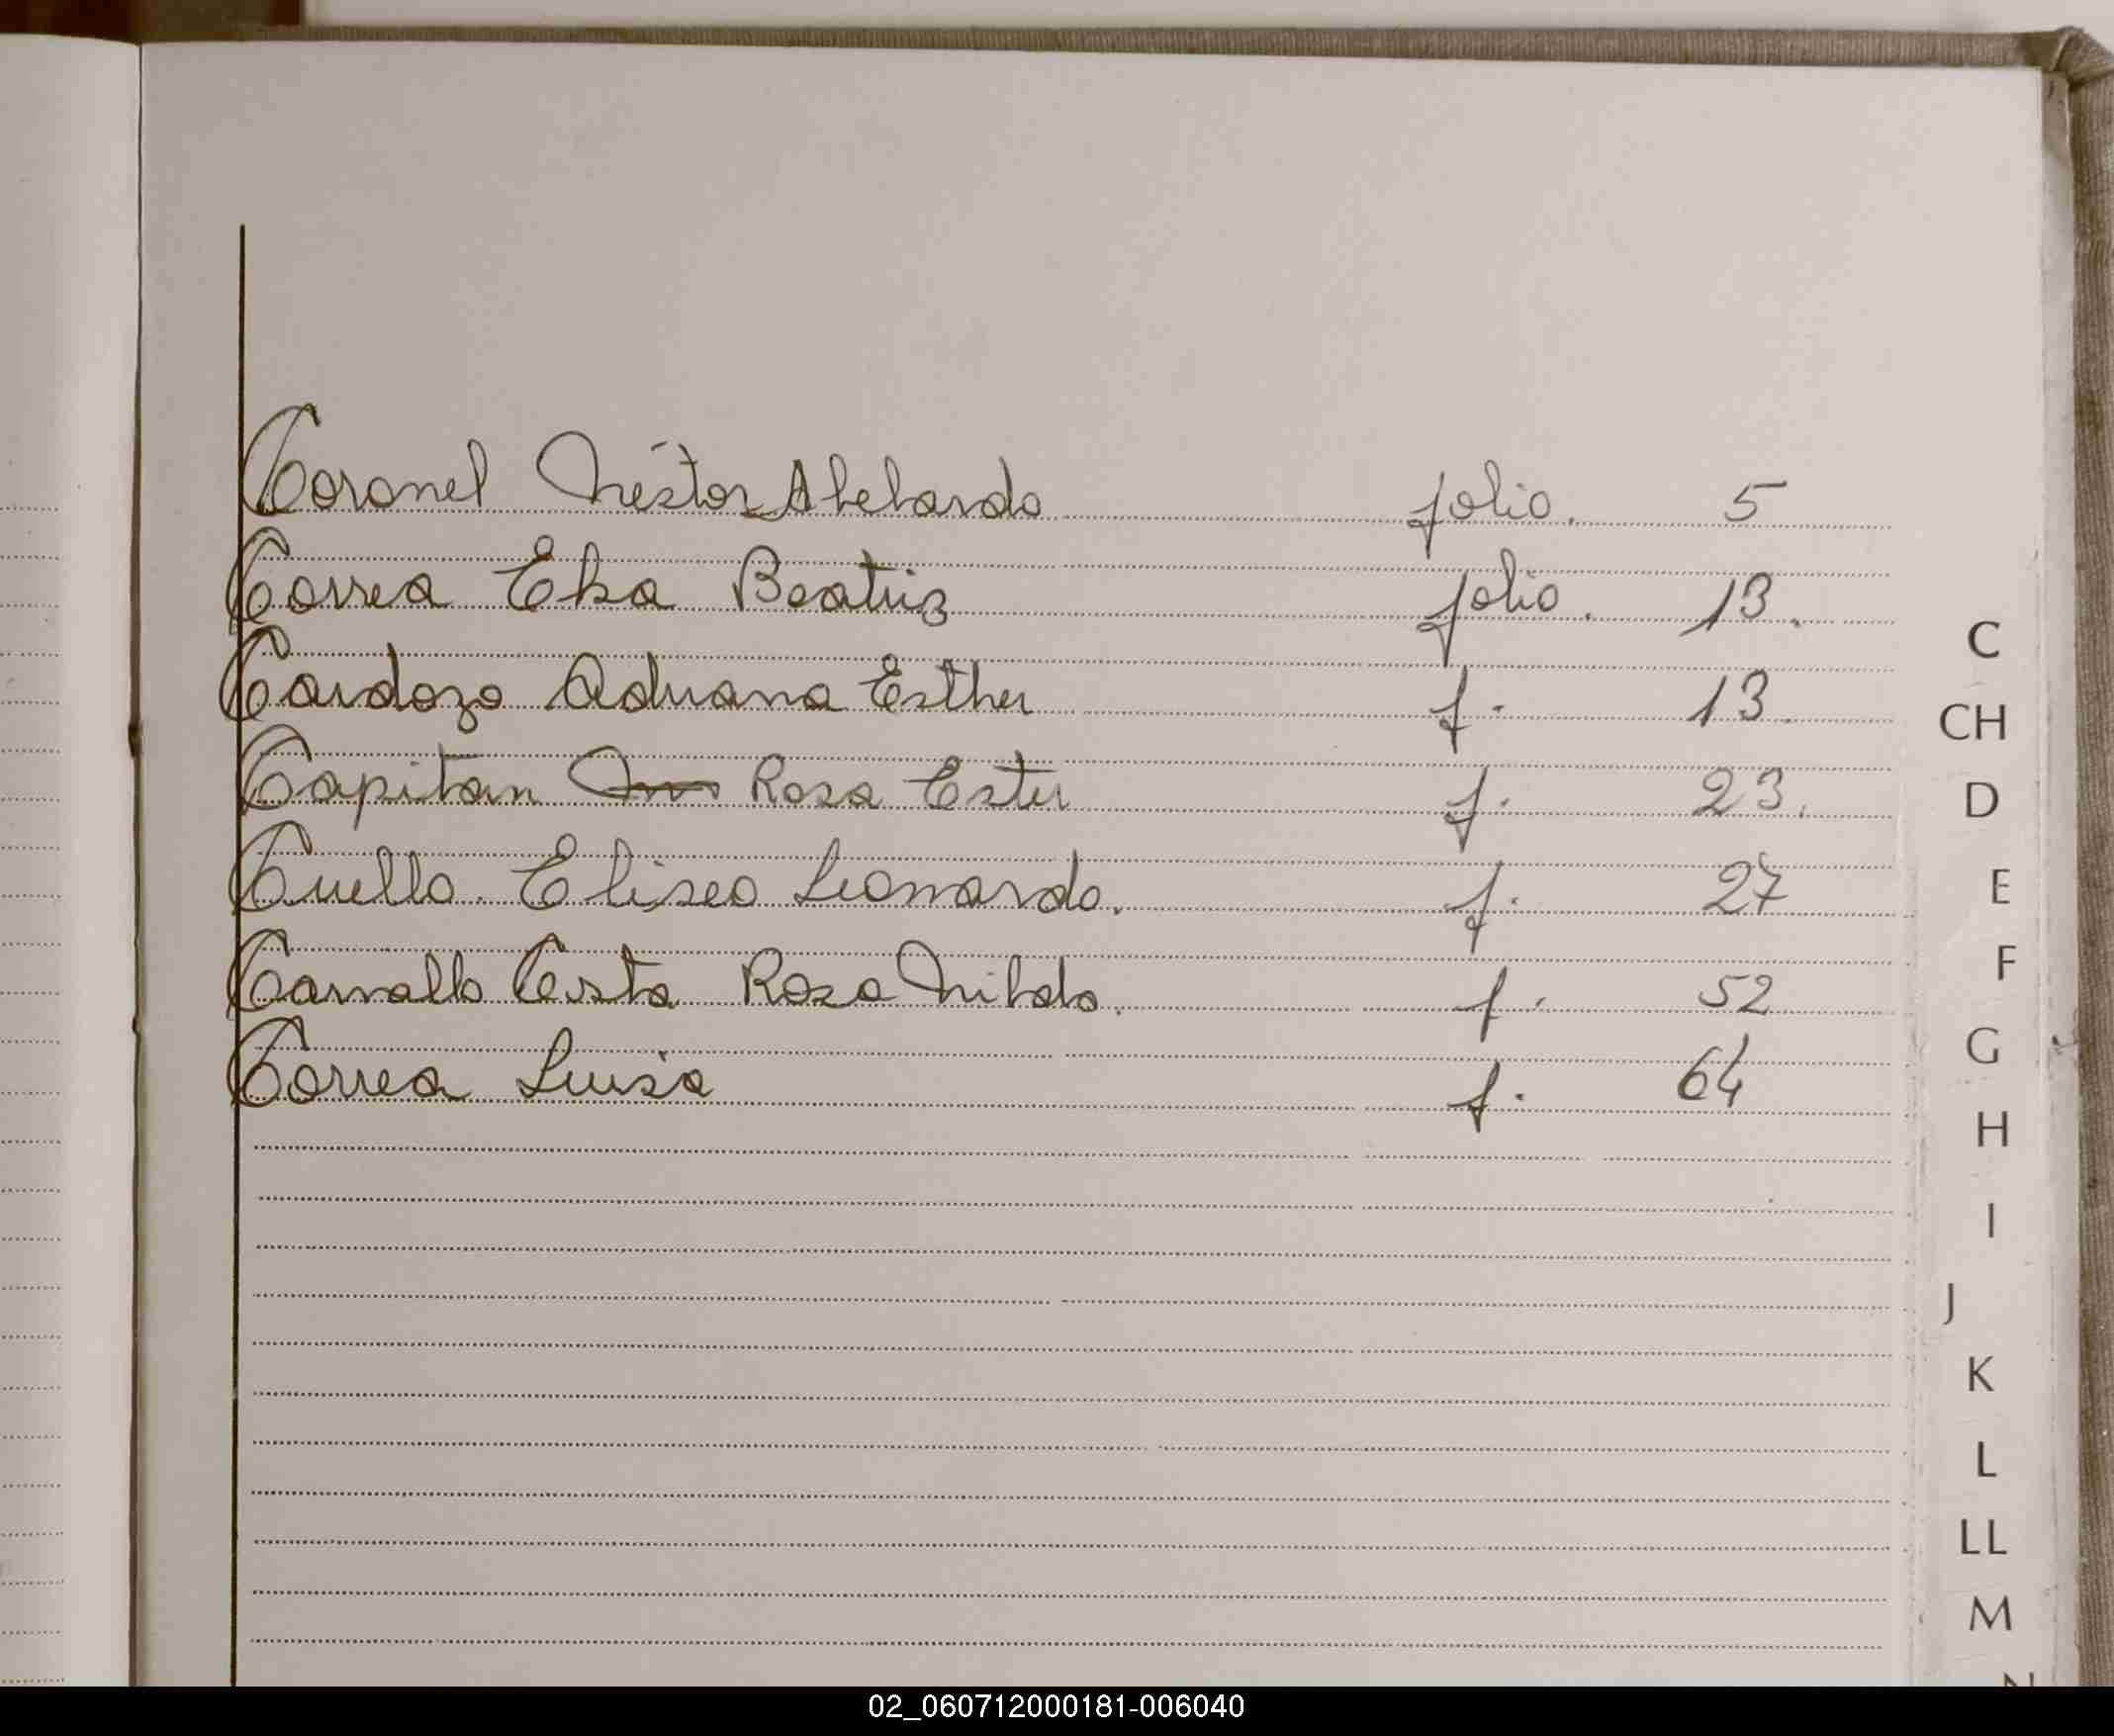 Coronel Néstor Abelardo folio. 5
Correa Elsa Beatriz folio. 13.
Cardozo Adriana Esther f. 13.
Capitan Rosa Ester f. 23.
Cuello. Eliseo Leonardo. f. 27
Carvallo Costa Rosa Nilda. f. 52
Correa Luisa f. 64
C
CH
D
E
F
G
H
I
J
K
L
LL
M
N
02_060712000181-006040